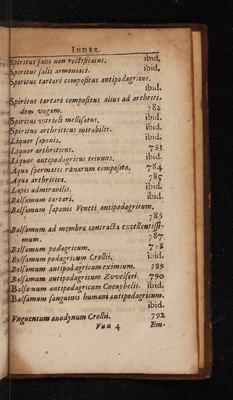 INDEX.
Spiritus salis non rectificatus. ibid.
Spiritus salis armoniaci. ibid.
Spiritus tartari compositus antipodagricus.
ibid.
Spiritus tartari compositus alius ad arthriti-
dem vagam. 782
Spiritus vitrioli mellisatus. ibid.
Spiritus arthriticus mirabilis. ibid.
Liquor saponis. ibid.
Liquor arthriticus. 781
Liquor antipodagricus trinuns. ibid.
Aqua spermatis ranarum composita. 784
Aqua arthritica. 785
Lapis admirabilis. ibid.
Balsamum tartari. ibid.
Balsamum saponis Veneti antipodagricum.
786
Balsamum ad membra contracta excellentissi-
mum. 787
Balsamum podagricum.
Balsamum podagricum Crollii. ibid.
Balsamum antipodagricum eximium. 789
Balsamum antipodagricum Zvvelferi. 790
Balsamum antipodagricum Cneuphelii. ibid.
Balsamum sanguinis humani antipodagricum.
ibid.
Vnguentum anodynum Crollii. 792
Vuu 4 Em-